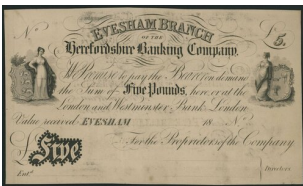 EVESHAM BRANCH
OF THE
Herefordshire Banking Company.
№ £5.
We Promise to pay the Bearer on demand
the Sum of Five Pounds, here, or at the
London and Westminster Bank London
Value received EVESHAM 18 №
For the Proprietors of the Company
Five
Entd. Directors